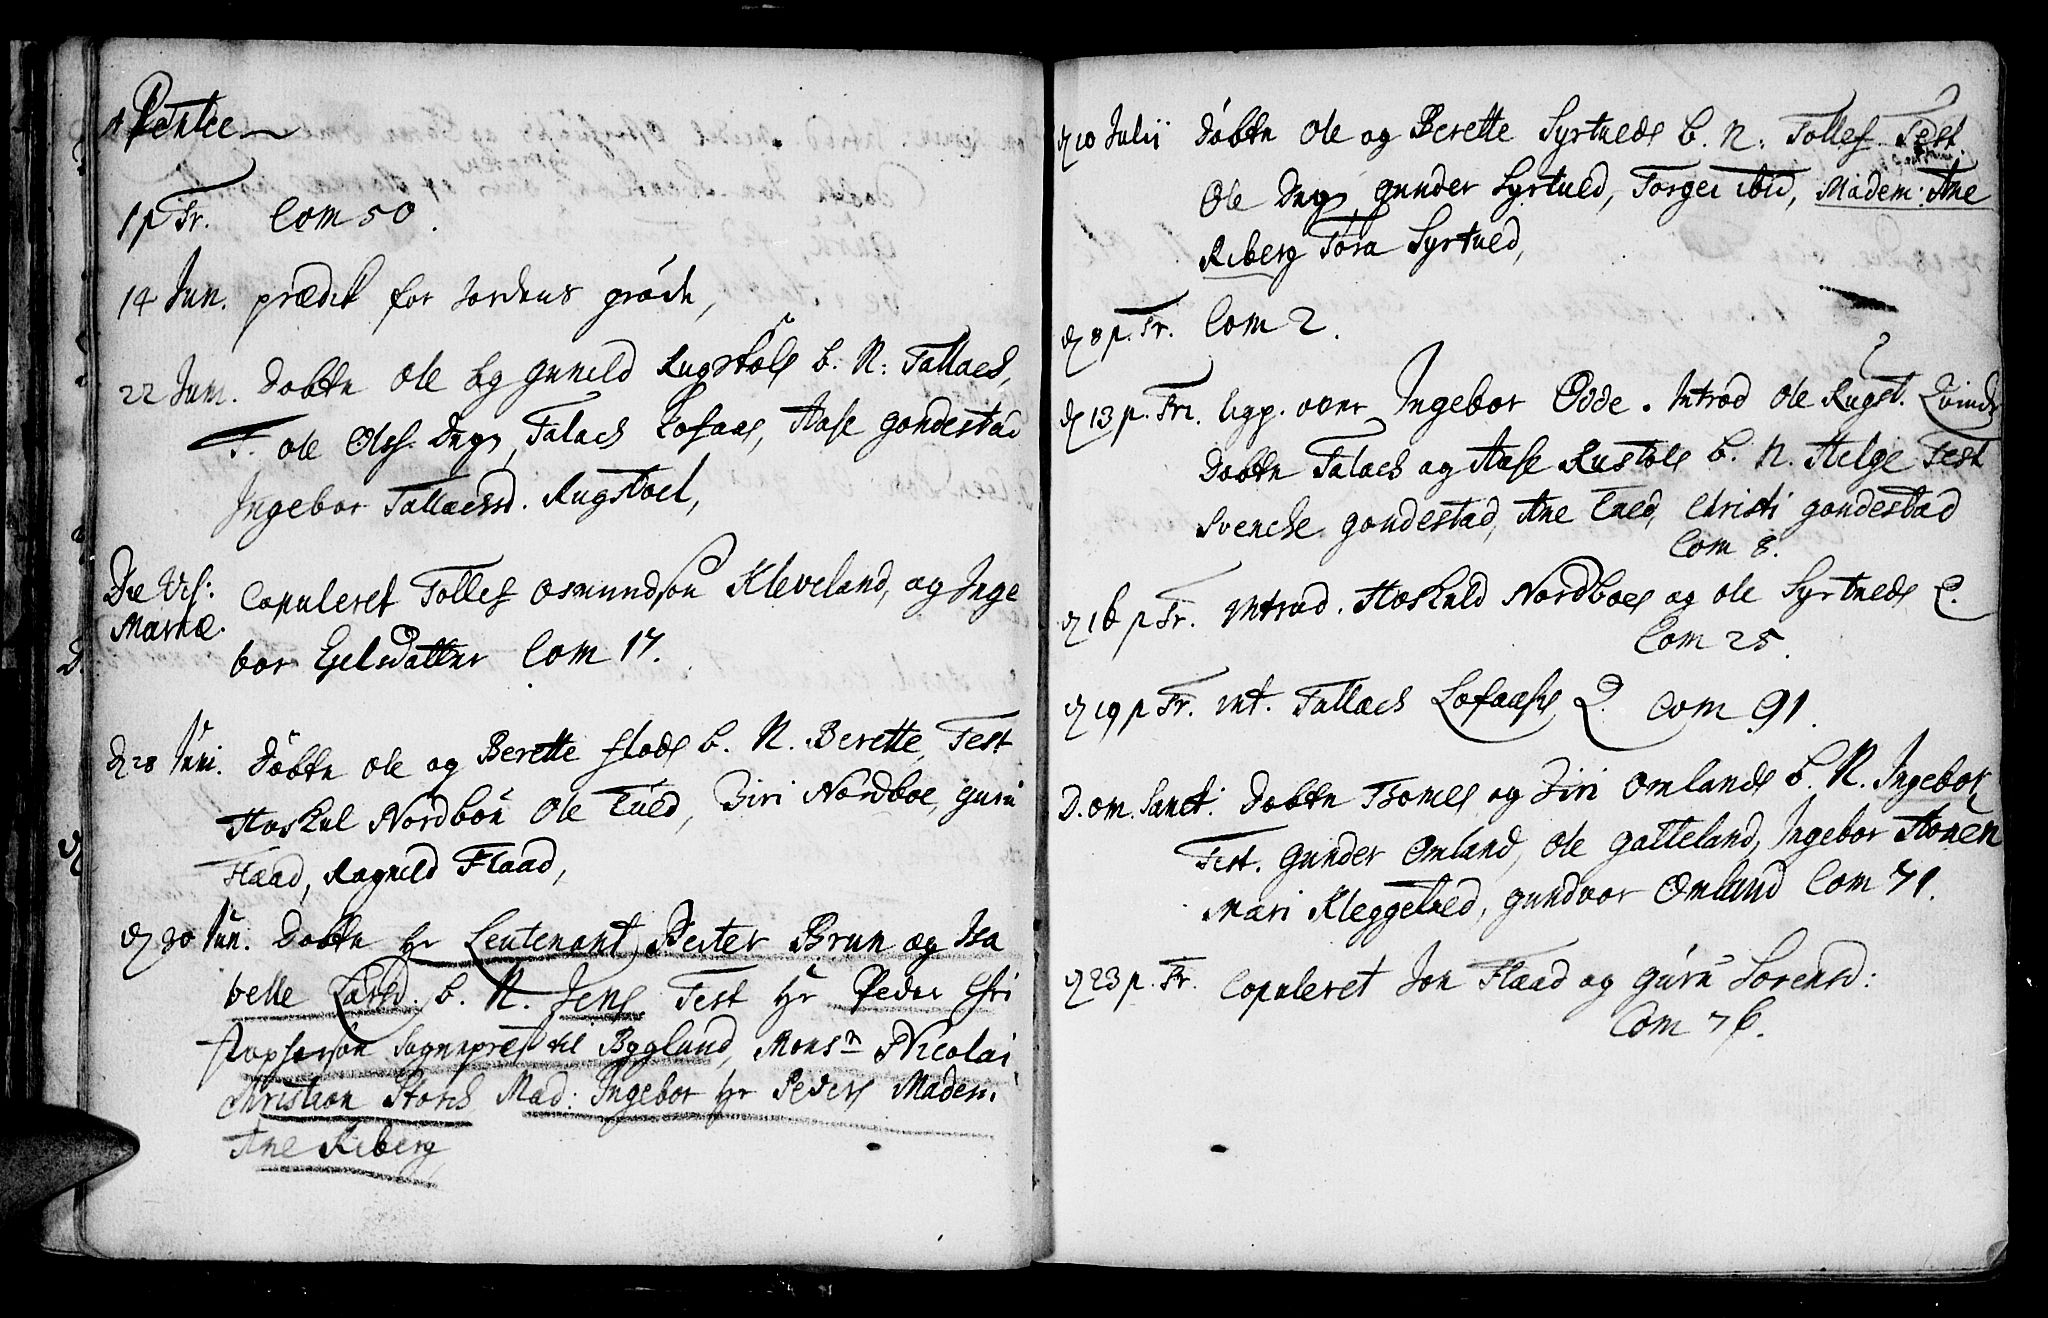 1 Pentec
1 p Tr. Com 50.
14 Jun. prædik for Jordens grøde,
22 Jun. Døbte Ole og Gunild Rugstøls b. N: Tallach,
T. Ole Olss. Tallach Lofaas, Aase Gondestad
Ingebor Tallachsd. Rugstoel,
Die Vis: Copuleret Tollef Osmundsøn Kleveland, og Inge
Mariæ. bor Eielsdatter Com 17.
D 28 Juni. Døbte Ole og Berette Flods b. N. Berette, Test
Hoskul Nordboe Ole Tued, Biri Nordboe, Guru
Flaad, Ragnild Flaad,
D 30 Jun. Døbte Hr Leutenant Peiter Brun og Isa
belle Larsd. b. N. Jens Test Hr Peder Chri
stophersøn Sognepres til Bygland, Monsr Nicolai
Christian Storch Mad: Ingebor Hr Peders Madem.
Ane Riberg
D 10 Julii Døbte Ole og Berette Syrtveds b. N: Tollef Test.
Ole Gunder Syrtved, Torgei ibid, Madem: Ane
Riberg Tora Syrtved,
D 8 p. Tr. Com 2.
D 13 p. Tri. ligp. over Ingebor Odde. Introd Ole Rugst. Qvinde
Døbte Talach og Aase Rustøls b. N. Helge Test
Svenche Gondestad, Ane Tued, Christi Gondestad
Com 8.
D 16 p Tr. Introd. Hoskuld Nordboes og Ole Syrtveds Q.
Com 25.
D 19 p Tr. int. Tallach Lofaases Q. Com 91.
D. om. Sanct: Døbte Tomes og Biri Omlands b. N. Ingebor,
Test. Gunder Omland, Ole Gatteland, Ingebor Honen
Mari Kleggetved, Gundvor Omland Com 71.
D 23 p. Tr. Copuleret Jon Flaad og Guru Sorensd:
Com 76.